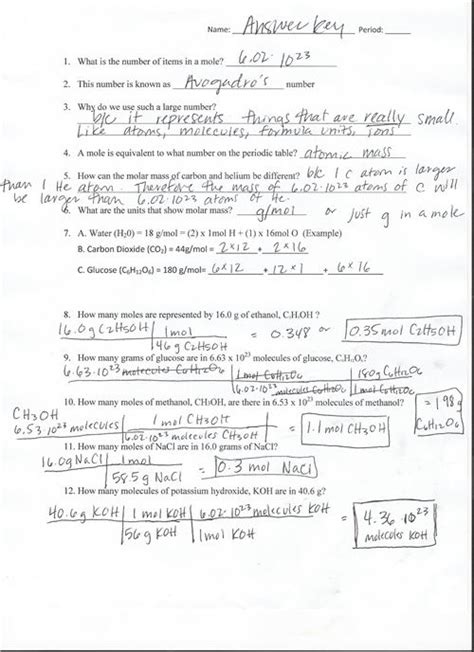 Name: Answer key Period:
1. What is the number of items in a mole? 6.02·10²³
2. This number is known as Avogadro's number
3. Why do we use such a large number?
b/c it represents things that are really small.
Like atoms, molecules, formula units, ions
4. A mole is equivalent to what number on the periodic table? atomic mass
5. How can the molar mass of carbon and helium be different? b/c 1 C atom is larger
than 1 He atom. Therefore the mass of 6.02·10²³ atoms of C will
be larger than 6.02·10²³ atoms of He.
6. What are the units that show molar mass? g/mol or just g in a mole
7. A. Water (H₂0) = 18 g/mol = (2) x 1mol H + (1) x 16mol O (Example)
B. Carbon Dioxide (CO₂) = 44g/mol = 2×12 + 2×16
C. Glucose (C₆H₁₂O₆) = 180 g/mol= 6×12 + 12×1 + 6×16
8. How many moles are represented by 16.0 g of ethanol, C₂H₅OH ?
16.0g C2H5OH | 1mol = 0.348 or 0.35mol C2H5OH
46g C2H5OH
9. How many grams of glucose are in 6.63 x 10²³ molecules of glucose, C₆H₁₂O₆?
6.63·10²³ molecules C6H12O6 | 1mol C6H12O6 | 180g C6H12O6
6.02·10²³ molecules C6H12O6 | 1mol C6H12O6
= 198g
C6H12O6
10. How many moles of methanol, CH₃OH, are there in 6.53 x 10²³ molecules of methanol?
CH3OH
6.53·10²³ molecules | 1 mol CH3OH = 1.1mol CH3OH
6.02·10²³ molecules CH3OH
11. How many moles of NaCl are in 16.0 grams of NaCl?
16.0g NaCl | 1mol = 0.3 mol NaCl
58.5g NaCl
12. How many molecules of potassium hydroxide, KOH are in 40.6 g?
40.6g KOH | 1 mol KOH | 6.02·10²³ molecules KOH = 4.36·10²³
56g KOH | 1mol KOH molecules KOH